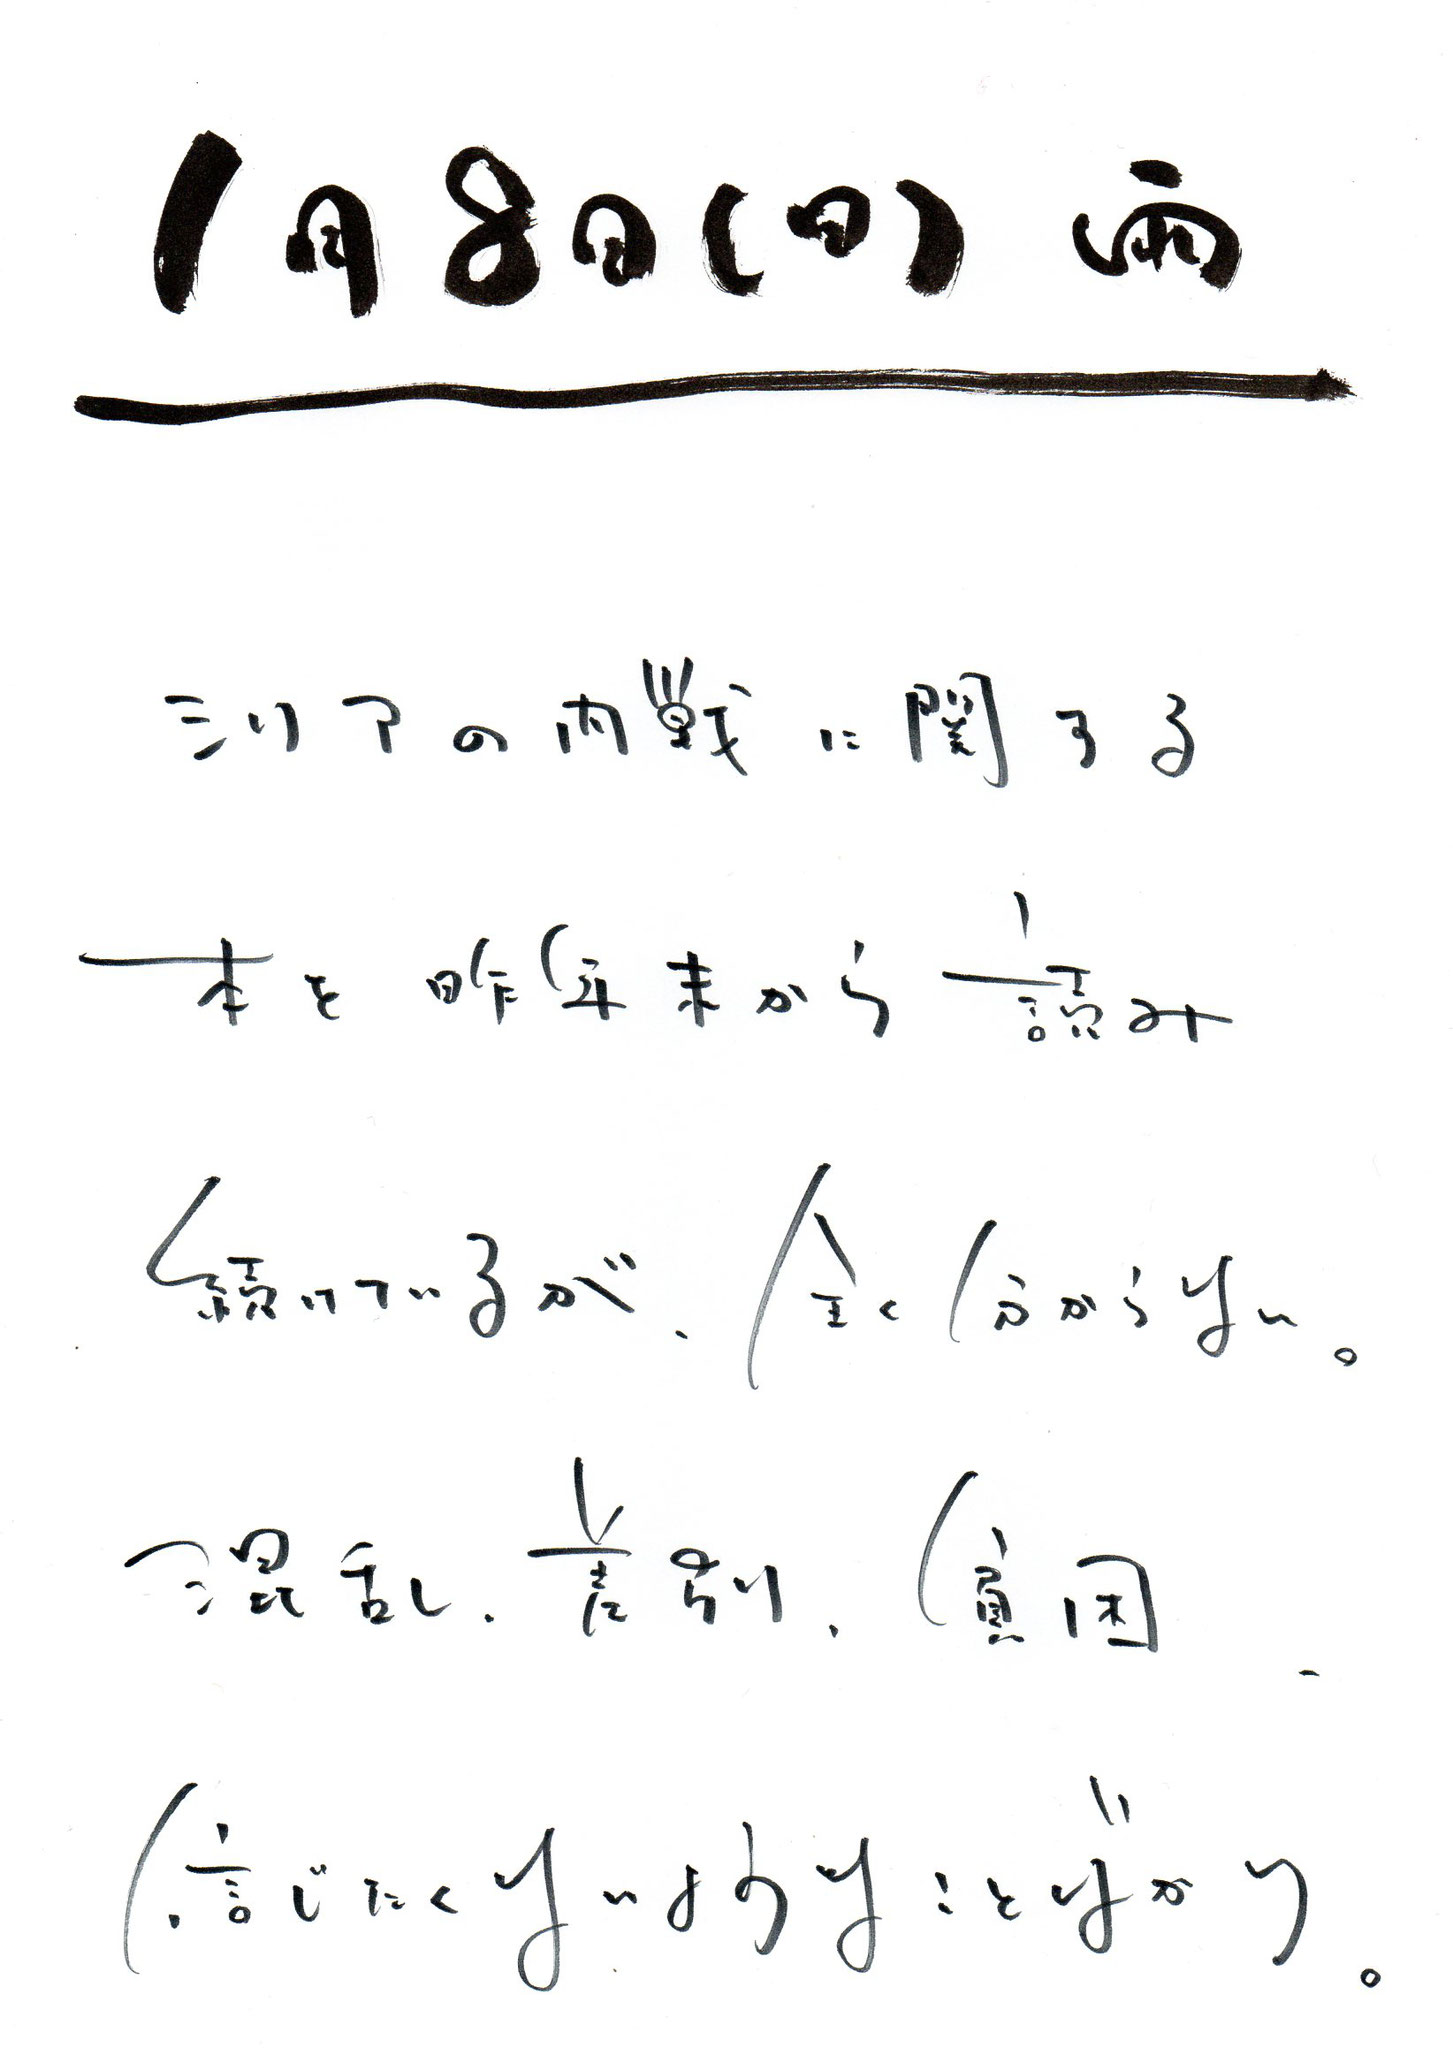 1月8日(日)雨
シリアの内戦に関する
本を昨年末から読み
続けているが、全く分からない。
混乱、差別、貧困、
信じたくないようなことばかり。